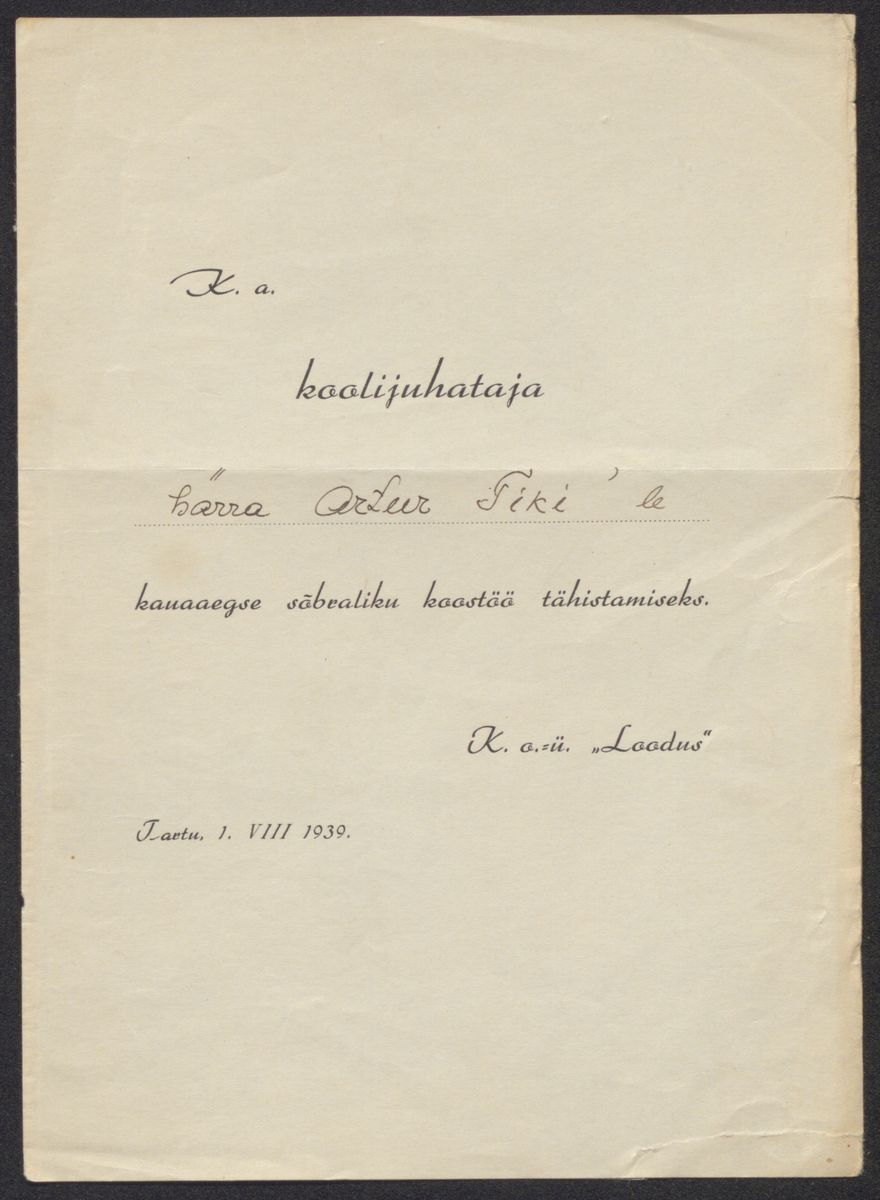 K. a.
koolijuhataja
härra Artur Tiki'le
kauaaegse sõbraliku koostöö tähistamiseks.
K. o.=ü. „Loodus“
Tartu, 1. VIII 1939.